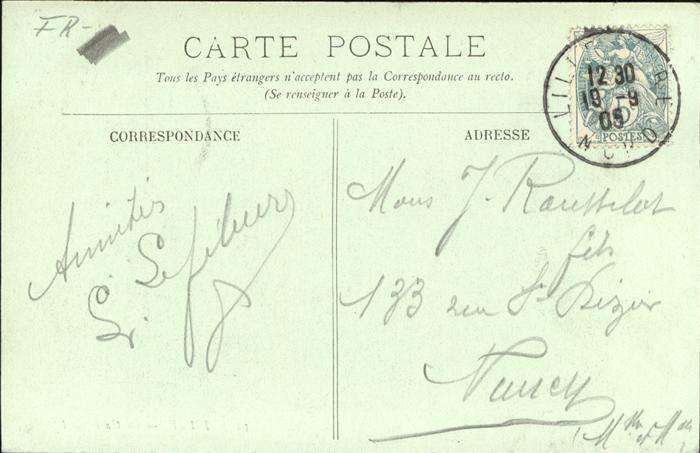 FR-
CARTE POSTALE
Tous les Pays étrangers n'acceptent pas la Correspondance au recto.
(Se renseigner à la Poste).
LILLE
12 30
19 -9
05
NORD
POSTES
CORRESPONDANCE
Amitiés
L. Lefebvre
ADRESSE
Mons J.
fils
133 rue St Dizier
Nancy
Mthe et Mlle